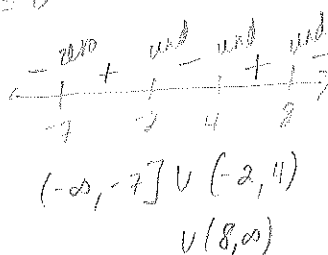 - zero + und - und + und -
-7 -2 4 8
(-∞, -7] ∪ (-2, 4)
∪ (8, ∞)